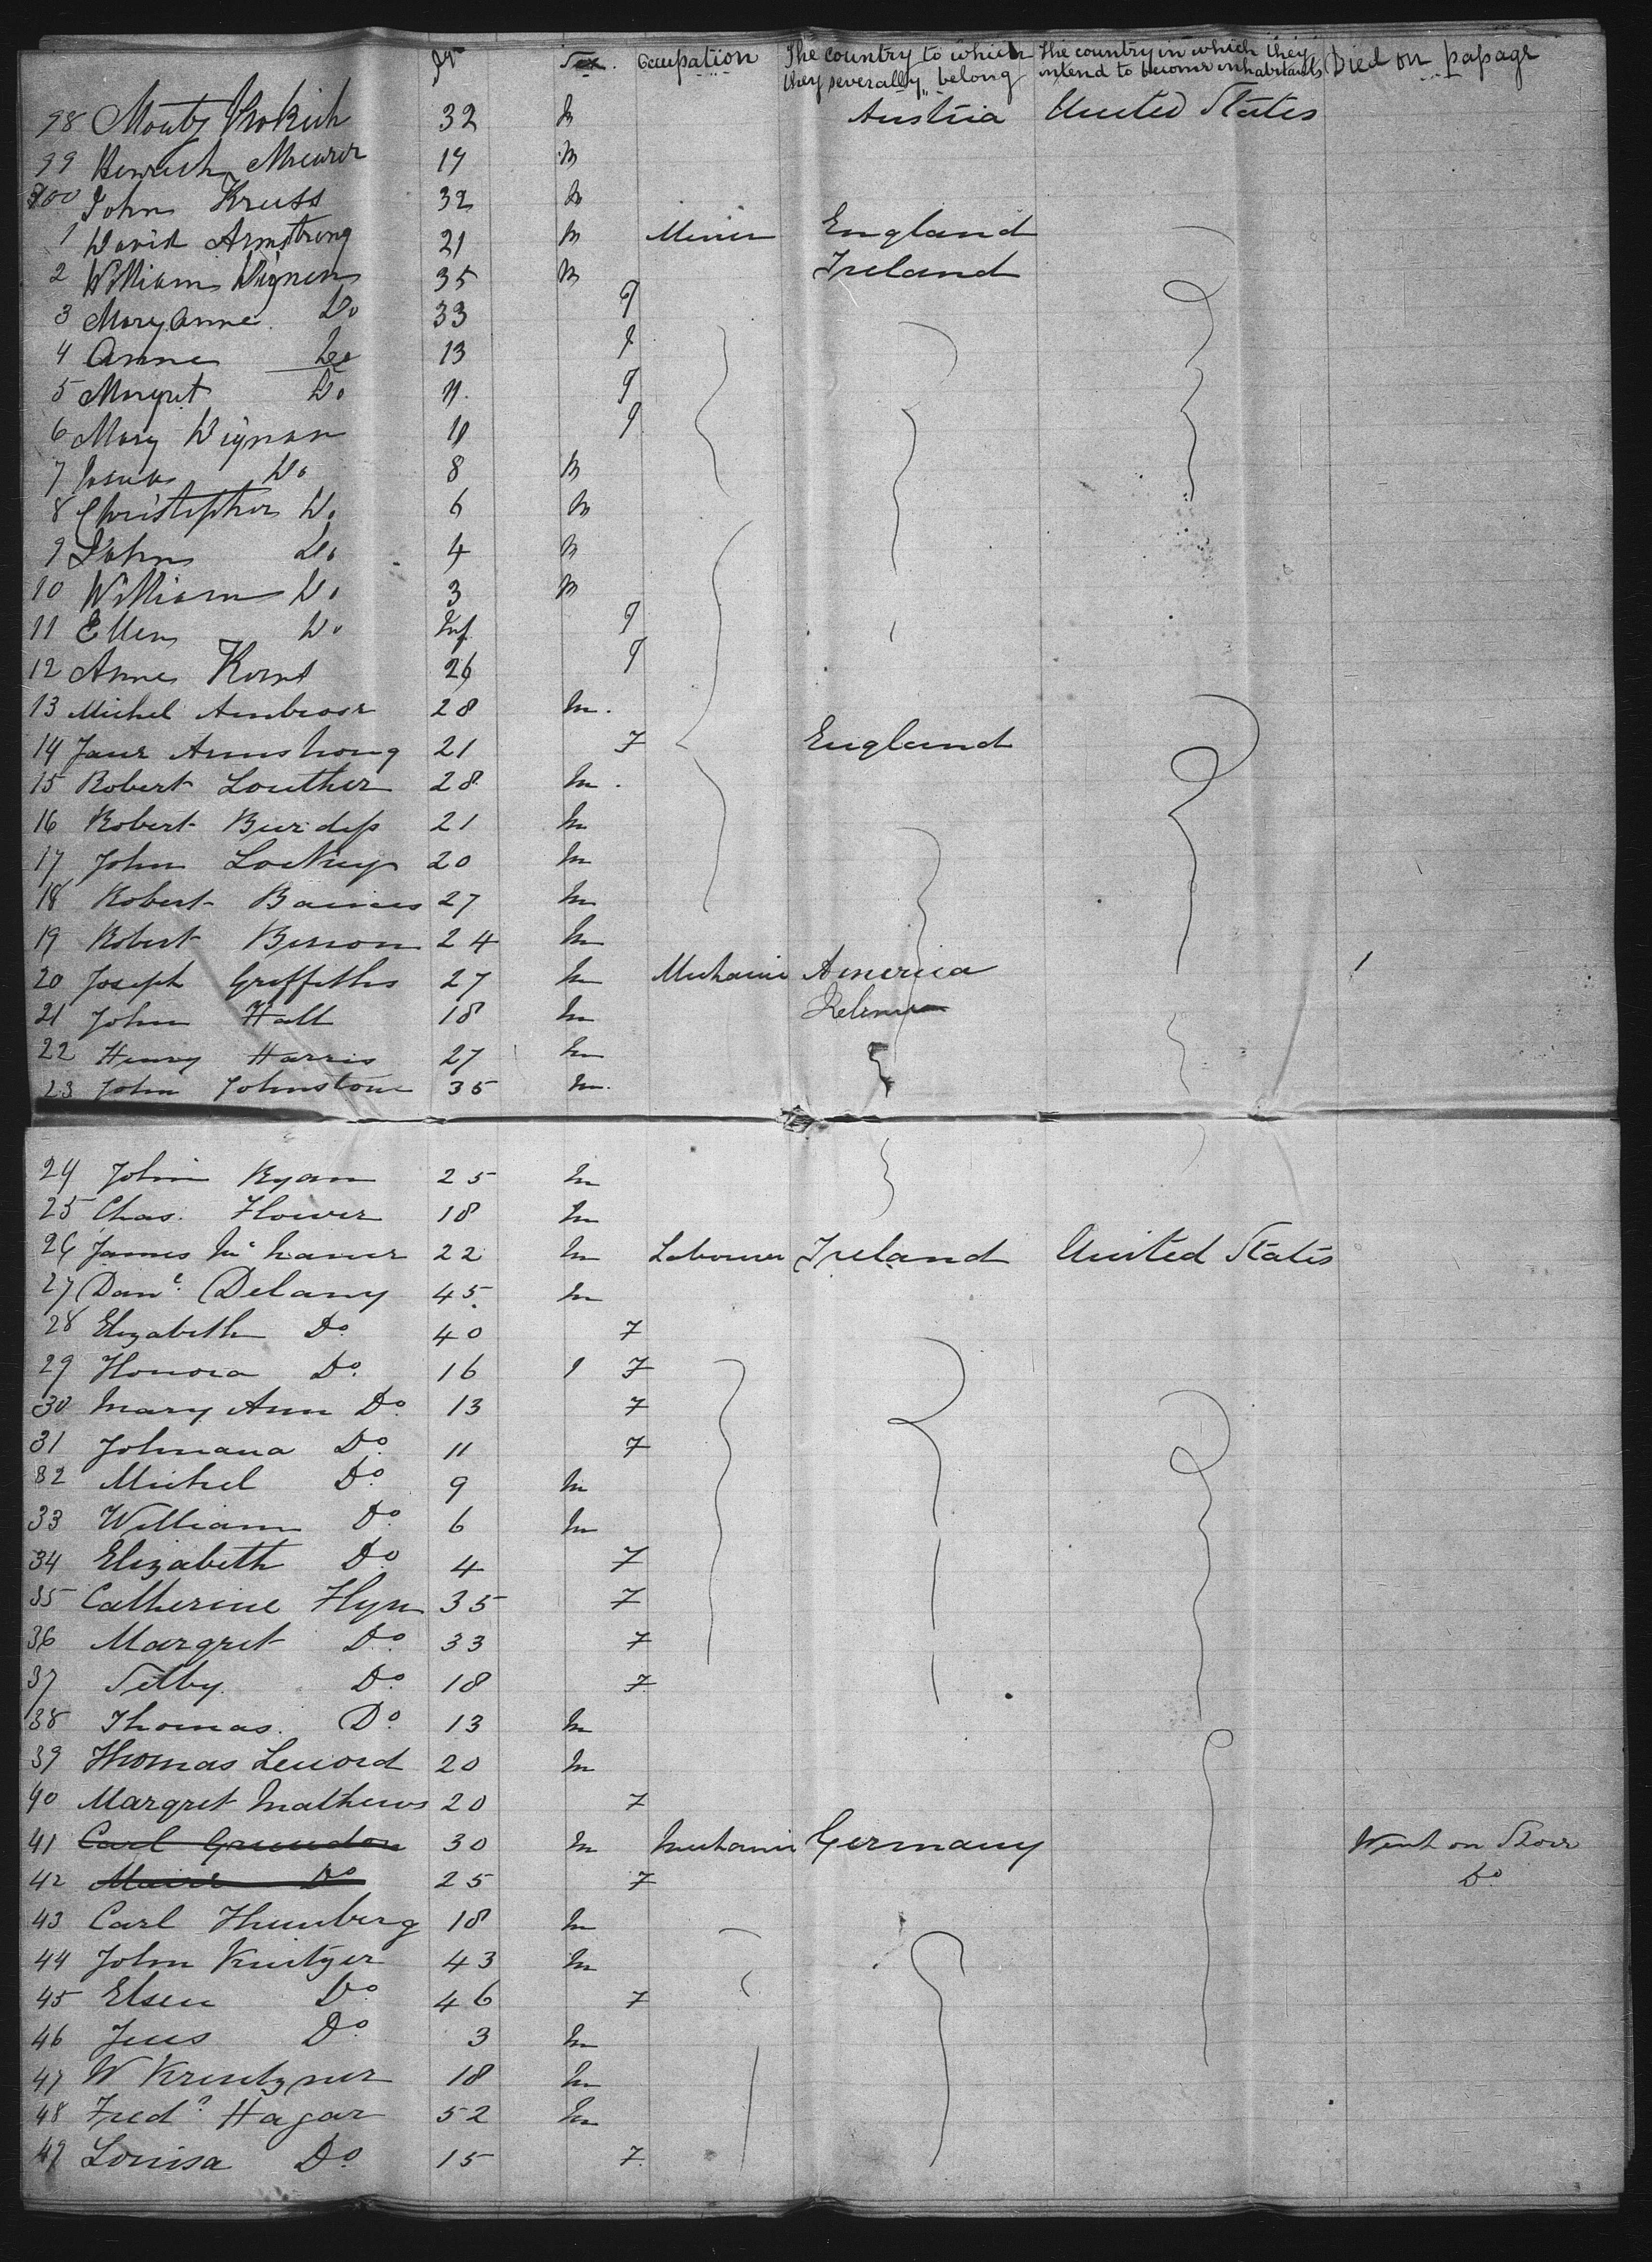 Sex. Occupation The country to which they severally belong The country in which they intend to become inhabitants Died on passage
98 32 M Austria United States
99 Heinrich Meurer 19 M
John Kruss 32 M
1 David Armstrong 21 M Miner England
2 William Dignan 35 M Ireland
3 Mary Anne Do 33 F
4 Anne Lee 13 F
5 Margret Do 11 F
6 Mary Dignan 11 F
7 Do 8 M
8 Christopher Do 6 M
9 John Do 4 M
10 William Do 3 M
11 Ellen Do Inf F
12 Anne 26 F
13 Michel Ambrose 28 M.
14 Jane Armstrong 21 F England
15 Robert Louther 28 M.
16 Robert Burdess 21 M
17 John 20 M
18 Robert Baines 27 M
19 Robert 24 M
20 Joseph Griffiths 27 M Mechanic America
21 John Hall 18 M
22 Henry Harris 27 M
23 John Johnstone 35 M.
24 John Ryan 25 M
25 Chas. Flower 18 M
26 James 22 M Labourer Ireland United States
27 Danl. Delany 45 M
28 Elizabeth Do. 40 F
29 Honora Do. 16 F
30 Mary Ann Do. 13 F
31 Johnana Do. 11 F
32 Michel Do. 9 M
33 William Do. 6 M
34 Elizabeth Do. 4 F
35 Catherine Flyn 35 F
36 Margret Do. 33 F
37 Do. 18 F
38 Thomas. Do. 13 M
39 Thomas Lenord 20 M
40 Margret Mathews 20 F
41 Carl 30 M Mechanic Germany Went on Shore
42 Do 25 F Do
43 Carl 18 M
44 John 43 M
45 Elsen Do 46 F
46 Jens Do 3 M
47 W 18 M
48 Fredk Hagar 52 M
49 Louisa Do. 15 F.